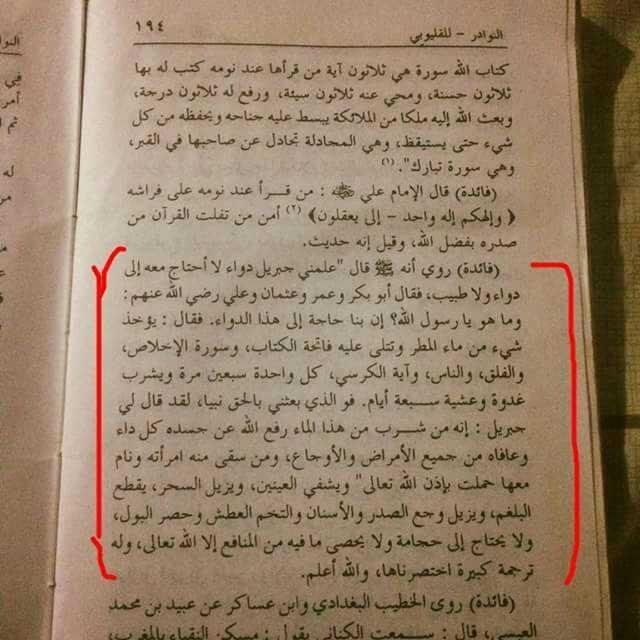 النوادر – للقليوبي ١٩٤
كتاب الله سورة هي ثلاثون آية من قرأها عند نومه كتب له بها
ثلاثون حسنة، ومحي عنه ثلاثون سيئة، ورفع له ثلاثون درجة،
وبعث الله إليه ملكا من الملائكة يبسط عليه جناحه ويحفظه من كل
شيء حتى يستيقظ، وهي المجادلة تجادل عن صاحبها في القبر،
وهي سورة تبارك". (١)
(فائدة) قال الإمام علي ﷺ : من قـــرأ عند نومه على فراشه
﴿ وإلهكم إله واحد – إلى يعقلون﴾ (٢) أمن من تفلت القرآن من
صدره بفضل الله، وقيل إنه حديث.
(فائدة) روي أنه ﷺ قال "علمني جبريل دواء لا أحتاج معه إلى
دواء ولا طبيب، فقال أبو بكر وعمر وعثمان وعلي رضي الله عنهم:
وما هو يا رسول الله؟ إن بنا حاجة إلى هذا الدواء. فقال : يؤخذ
شيء من ماء المطر وتتلى عليه فاتحة الكتاب، وسورة الإخلاص،
والفلق، والناس، وآية الكرسي، كل واحدة سبعين مرة ويشرب
غدوة وعشية سـبعة أيام. فو الذي بعثني بالحق نبيا، لقد قال لي
جبريل : إنه من شـــرب من هذا الماء رفع الله عن جسده كل داء
وعافاه من جميع الأمراض والأوجاع، ومن سقى منه امرأته ونام
معها حملت بإذن الله تعالى" ويشفي العينين، ويزيل السحر، يقطع
البلغم، ويزيل وجع الصدر والأسنان والتخم العطش وحصر البول،
ولا يحتاج إلى حجامة ولا يحصى ما فيه من المنافع إلا الله تعالى، وله
ترجمة كبيرة اختصرناها، والله أعلم.
(فائدة) روى الخطيب البغدادي وابن عساكر عن عبيد بن محمد
العبسي، قال : سـمعت الكناني يقول : مسكن النقباء بالمغرب،